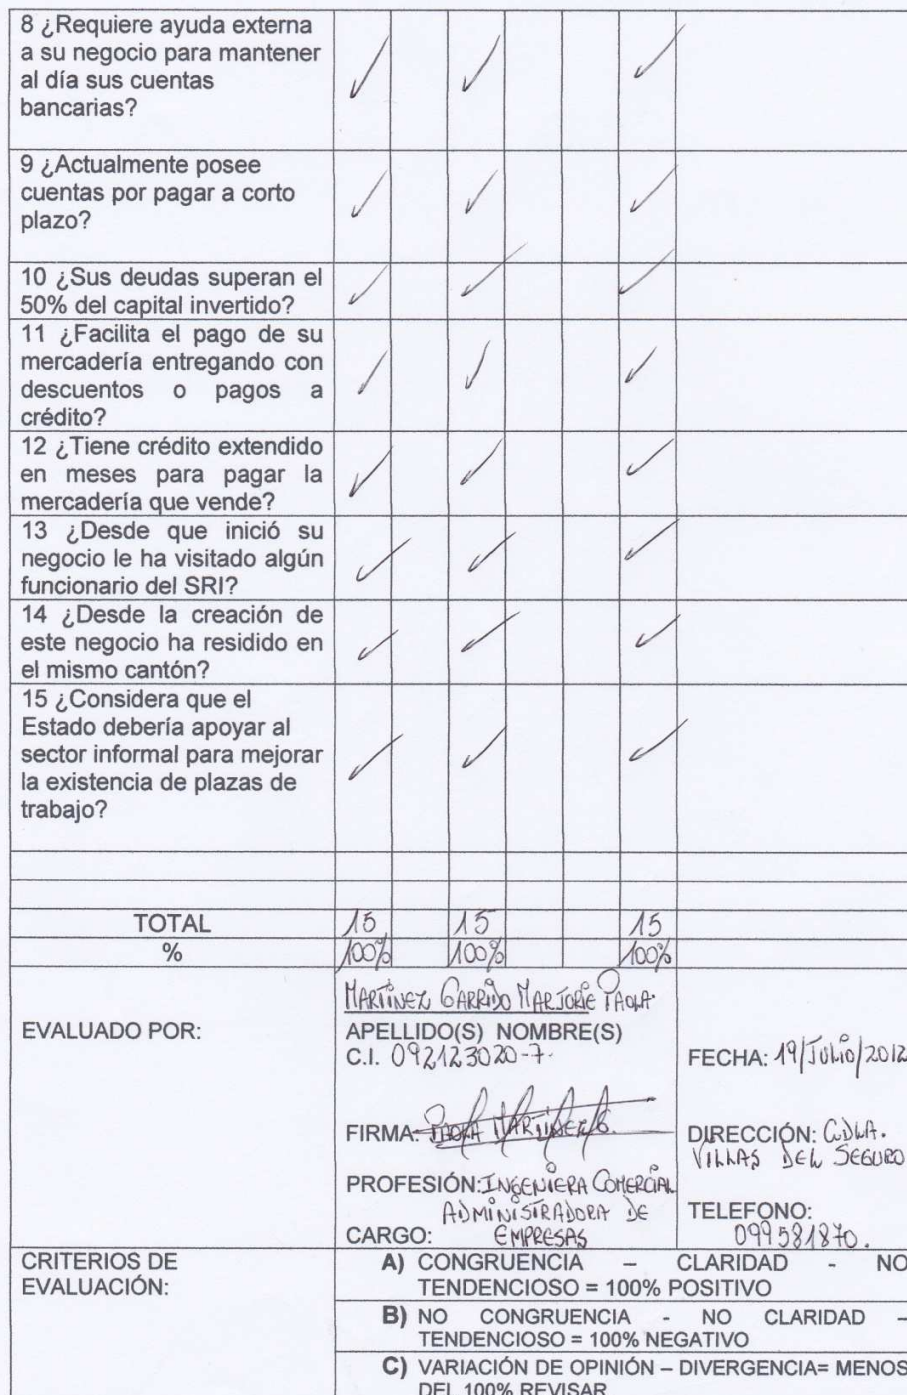 8 ¿Requiere ayuda externa
a su negocio para mantener
al día sus cuentas
bancarias?
9 ¿Actualmente posee
cuentas por pagar a corto
plazo?
10 ¿Sus deudas superan el
50% del capital invertido?
11 ¿Facilita el pago de su
mercadería entregando con
descuentos o pagos a
crédito?
12 ¿Tiene crédito extendido
en meses para pagar la
mercadería que vende?
13 ¿Desde que inició su
negocio le ha visitado algún
funcionario del SRI?
14 ¿Desde la creación de
este negocio ha residido en
el mismo cantón?
15 ¿Considera que el
Estado debería apoyar al
sector informal para mejorar
la existencia de plazas de
trabajo?
TOTAL 15 15 15
% 100% 100% 100%
EVALUADO POR:
MARTÍNEZ GARRIDO MARJORIE PAOLA
APELLIDO(S) NOMBRE(S)
C.I. 092123020-7.
FECHA: 19/JULIO/2012
FIRMA: PAOLA MARTÍNEZ G.
DIRECCIÓN: CDLA.
VILLAS DEL SEGURO
PROFESIÓN: INGENIERA COMERCIAL
ADMINISTRADORA DE
CARGO: EMPRESAS
TELEFONO:
099581870.
CRITERIOS DE
EVALUACIÓN:
A) CONGRUENCIA – CLARIDAD - NO
TENDENCIOSO = 100% POSITIVO
B) NO CONGRUENCIA - NO CLARIDAD –
TENDENCIOSO = 100% NEGATIVO
C) VARIACIÓN DE OPINIÓN – DIVERGENCIA= MENOS
DEL 100% REVISAR